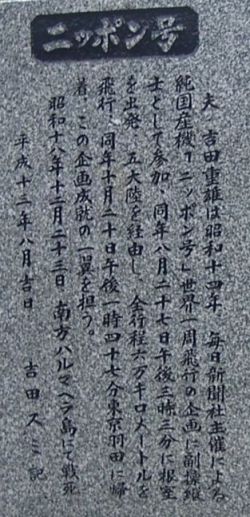 ニッポン号
夫 吉田重雄は昭和十四年 毎日新聞社主催による
純国産機「ニッポン号」世界一周飛行の企画に副操縦
士として参加、同年八月二十七日午後三時三分に根室
を出発、五大陸を経由し、全行程六万キロメートルを
飛行、同年十月二十日午後一時四十七分東京羽田に帰
着、この企画成就の一翼を担う。
昭和十八年十二月二十三日 南方ハルマヘラ島にて戦死
平成十三年八月吉日
吉田スミ記